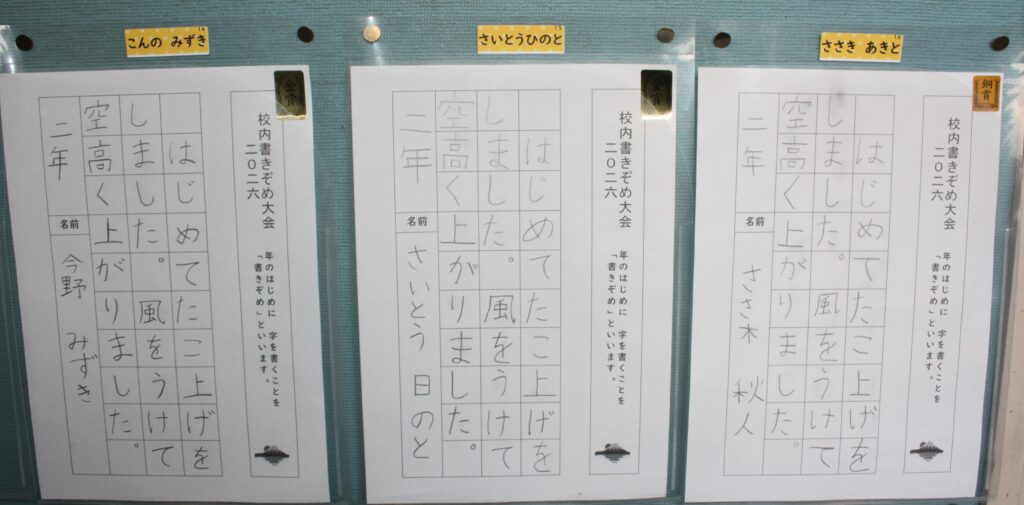 こんの みずき
金賞
校内書きぞめ大会
二〇二六
年のはじめに 字を書くことを
「書きぞめ」といいます。
はじめてたこ上げを
しました。風をうけて
空高く上がりました。
二年 名前 今野 みずき
さいとうひのと
金賞
校内書きぞめ大会
二〇二六
年のはじめに 字を書くことを
「書きぞめ」といいます。
はじめてたこ上げを
しました。風をうけて
空高く上がりました。
二年 名前 さいとう 日のと
ささき あきと
銅賞
校内書きぞめ大会
二〇二六
年のはじめに 字を書くことを
「書きぞめ」といいます。
はじめてたこ上げを
しました。風をうけて
空高く上がりました。
二年 名前 ささ木 秋人